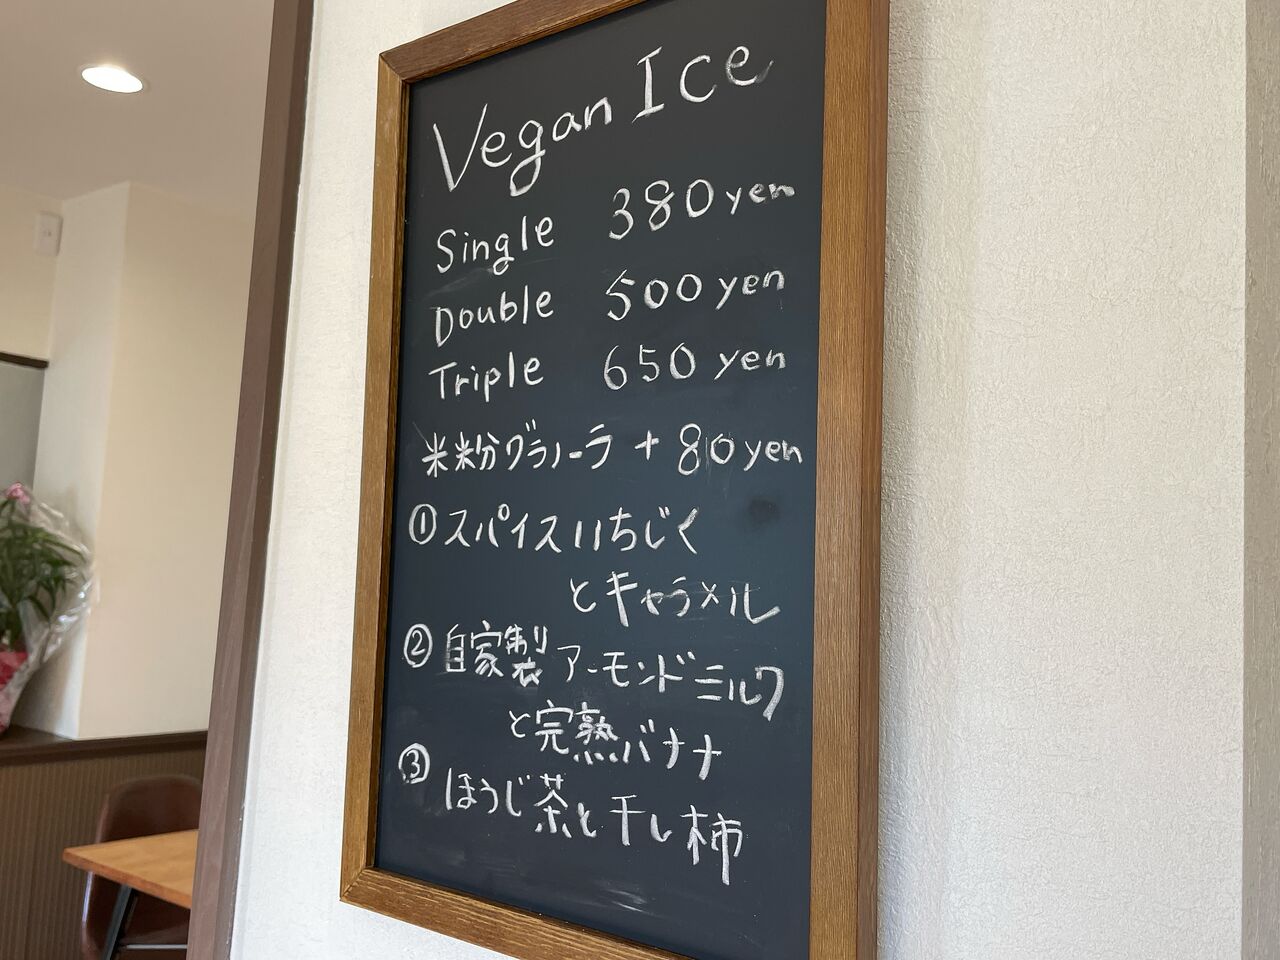 Vegan Ice
Single 380 yen
Double 500 yen
Triple 650 yen
米米粉グラノーラ + 80 yen
① スパイスいちじく
とキャラメル
② 自家製アーモンドミルク
と完熟バナナ
③ ほうじ茶と干し柿